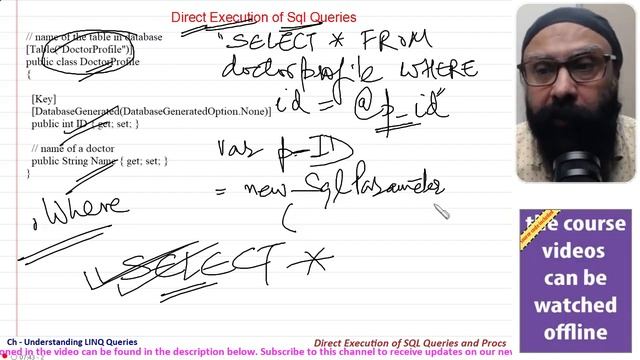 Direct Execution of Sql Queries
// name of the table in database
[Table("DoctorProfile")]
public class DoctorProfile
{
[Key]
[DatabaseGenerated(DatabaseGeneratedOption.None)]
public int ID { get; set; }
// name of a doctor
public String Name { get; set; }
}
"SELECT * FROM
doctorprofile WHERE
id = @p_id"
var p_ID
= new SqlParameter
(
.Where
SELECT *
the course
videos
can be
watched
offline
Ch - Understanding LINQ Queries
Direct Execution of SQL Queries and Procs
oned in the video can be found in the description below. Subscribe to this channel to receive updates on our ne